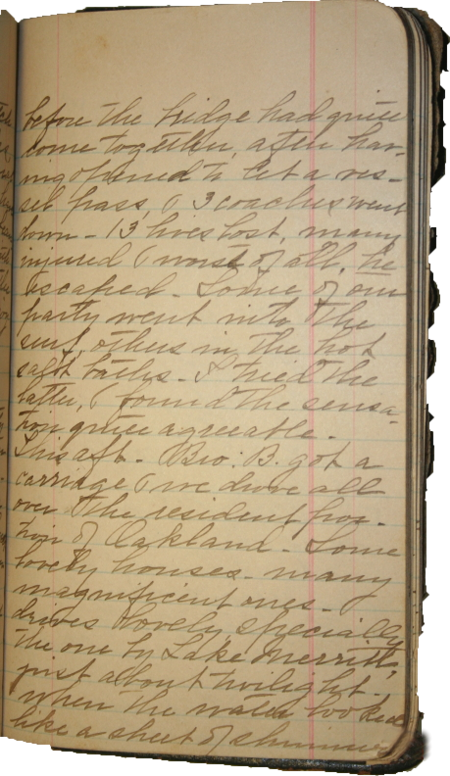 before the bridge had quite
come together, after hav-
ing opened to let a ves-
sel pass, & 3 coaches went
down - 13 lives lost, many
injured & worst of all, he
escaped - Some of our
party went into the
surf, others in the hot
salt baths - I tried the
latter, & found the sensa-
tion quite agreeable -
This aft - Bro: B. got a
carriage & we drove all
over the resident por-
tion of Oakland - Some
lovely houses - many
magnificent ones -
drives lovely, specially
the one by Lake Merritt,
just about twilight -
when the water looked
like a sheet of shimmer